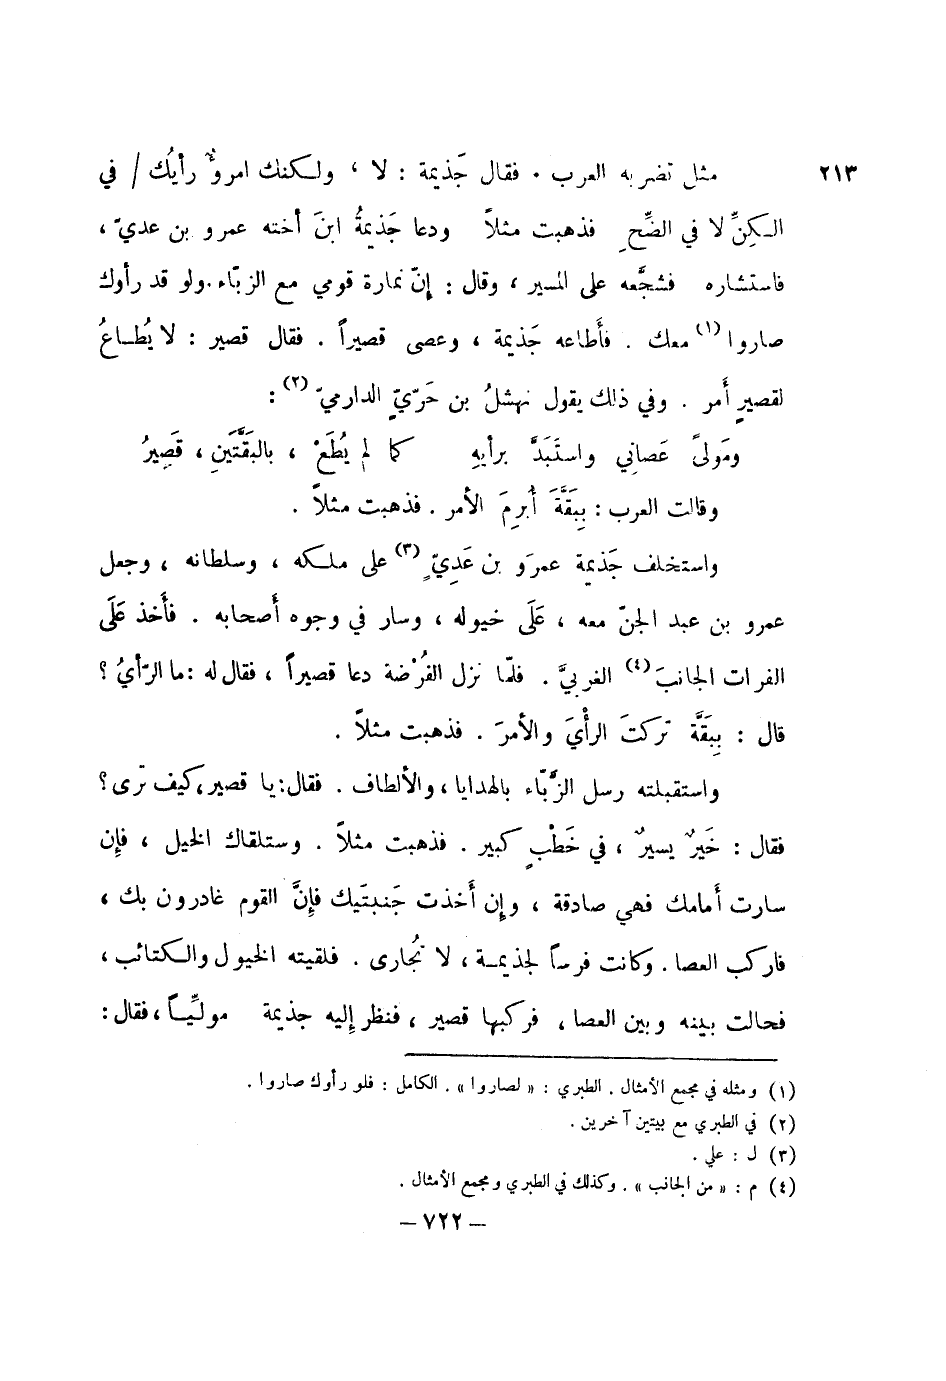 ٢١٣ مثل تضربه العرب . فقال جَذيمة : لا ، ولكنك امرؤٌ رأيُك / في
الكِنِّ لا في الضِّحِ فذهبت مثلاً ودعا جَذيمةُ ابنَ أخته عمرو بن عديّ ،
فاستشاره فشجَّعه على المسير ، وقال : إنّ نمارة قومي مع الزبّاء . ولو قد رأوك
صاروا (١) معك . فأَطاعه جَذيمة ، وعصى قصيراً . فقال قصير : لا يُطاعُ
لقصيرٍ أَمر . وفي ذلك يقول نهشلُ بن حَرّيّ الدارميّ (٢) :
ومَولىً عَصاني واستَبَدَّ برأيهِ كما لم يُطَعْ ، بالبَقَّتَينِ ، قَصِيرُ
وقالت العرب : بِبَقَّةَ أُبرِمَ الأمر . فذهبت مثلاً .
واستخلف جَذيمة عمرَو بن عَدِيّ (٣) على ملكه ، وسلطانه ، وجعل
عمرو بن عبد الجنّ معه ، عَلَى خيوله ، وسار في وجوه أَصحابه . فأَخذ عَلَى
الفرات الجانبَ (٤) الغربيَّ . فلمّا نزل الفُرْضة دعا قصيراً ، فقال له : ما الرّأيُ ؟
قال : بِبَقَّة تركتَ الرأْيَ والأمرَ . فذهبت مثلاً .
واستقبلته رسل الزَّبّاء بالهدايا ، والألطاف . فقال : يا قصير ، كيف ترى ؟
فقال : خَيرٌ يسيرٌ ، في خَطْبٍ كبير . فذهبت مثلاً . وستلقاك الخيل ، فإن
سارت أَمامك فهي صادقة ، وإن أَخذت جَنبتَيك فإنَّ القوم غادرون بك ،
فاركب العصا . وكانت فرساً لجذيمة ، لا تُجارى . فلقيته الخيول والكتائب ،
فحالت بينه وبين العصا ، فركبها قصير ، فنظر إليه جذيمة مولّياً ، فقال :
(١) ومثله في مجمع الأمثال . الطبري : « لصاروا » . الكامل : فلو رأوك صاروا .
(٢) في الطبري مع بيتين آخرين .
(٣) ل : علي .
(٤) م : « من الجانب » . وكذلك في الطبري ومجمع الأمثال .
— ٧٢٢ —